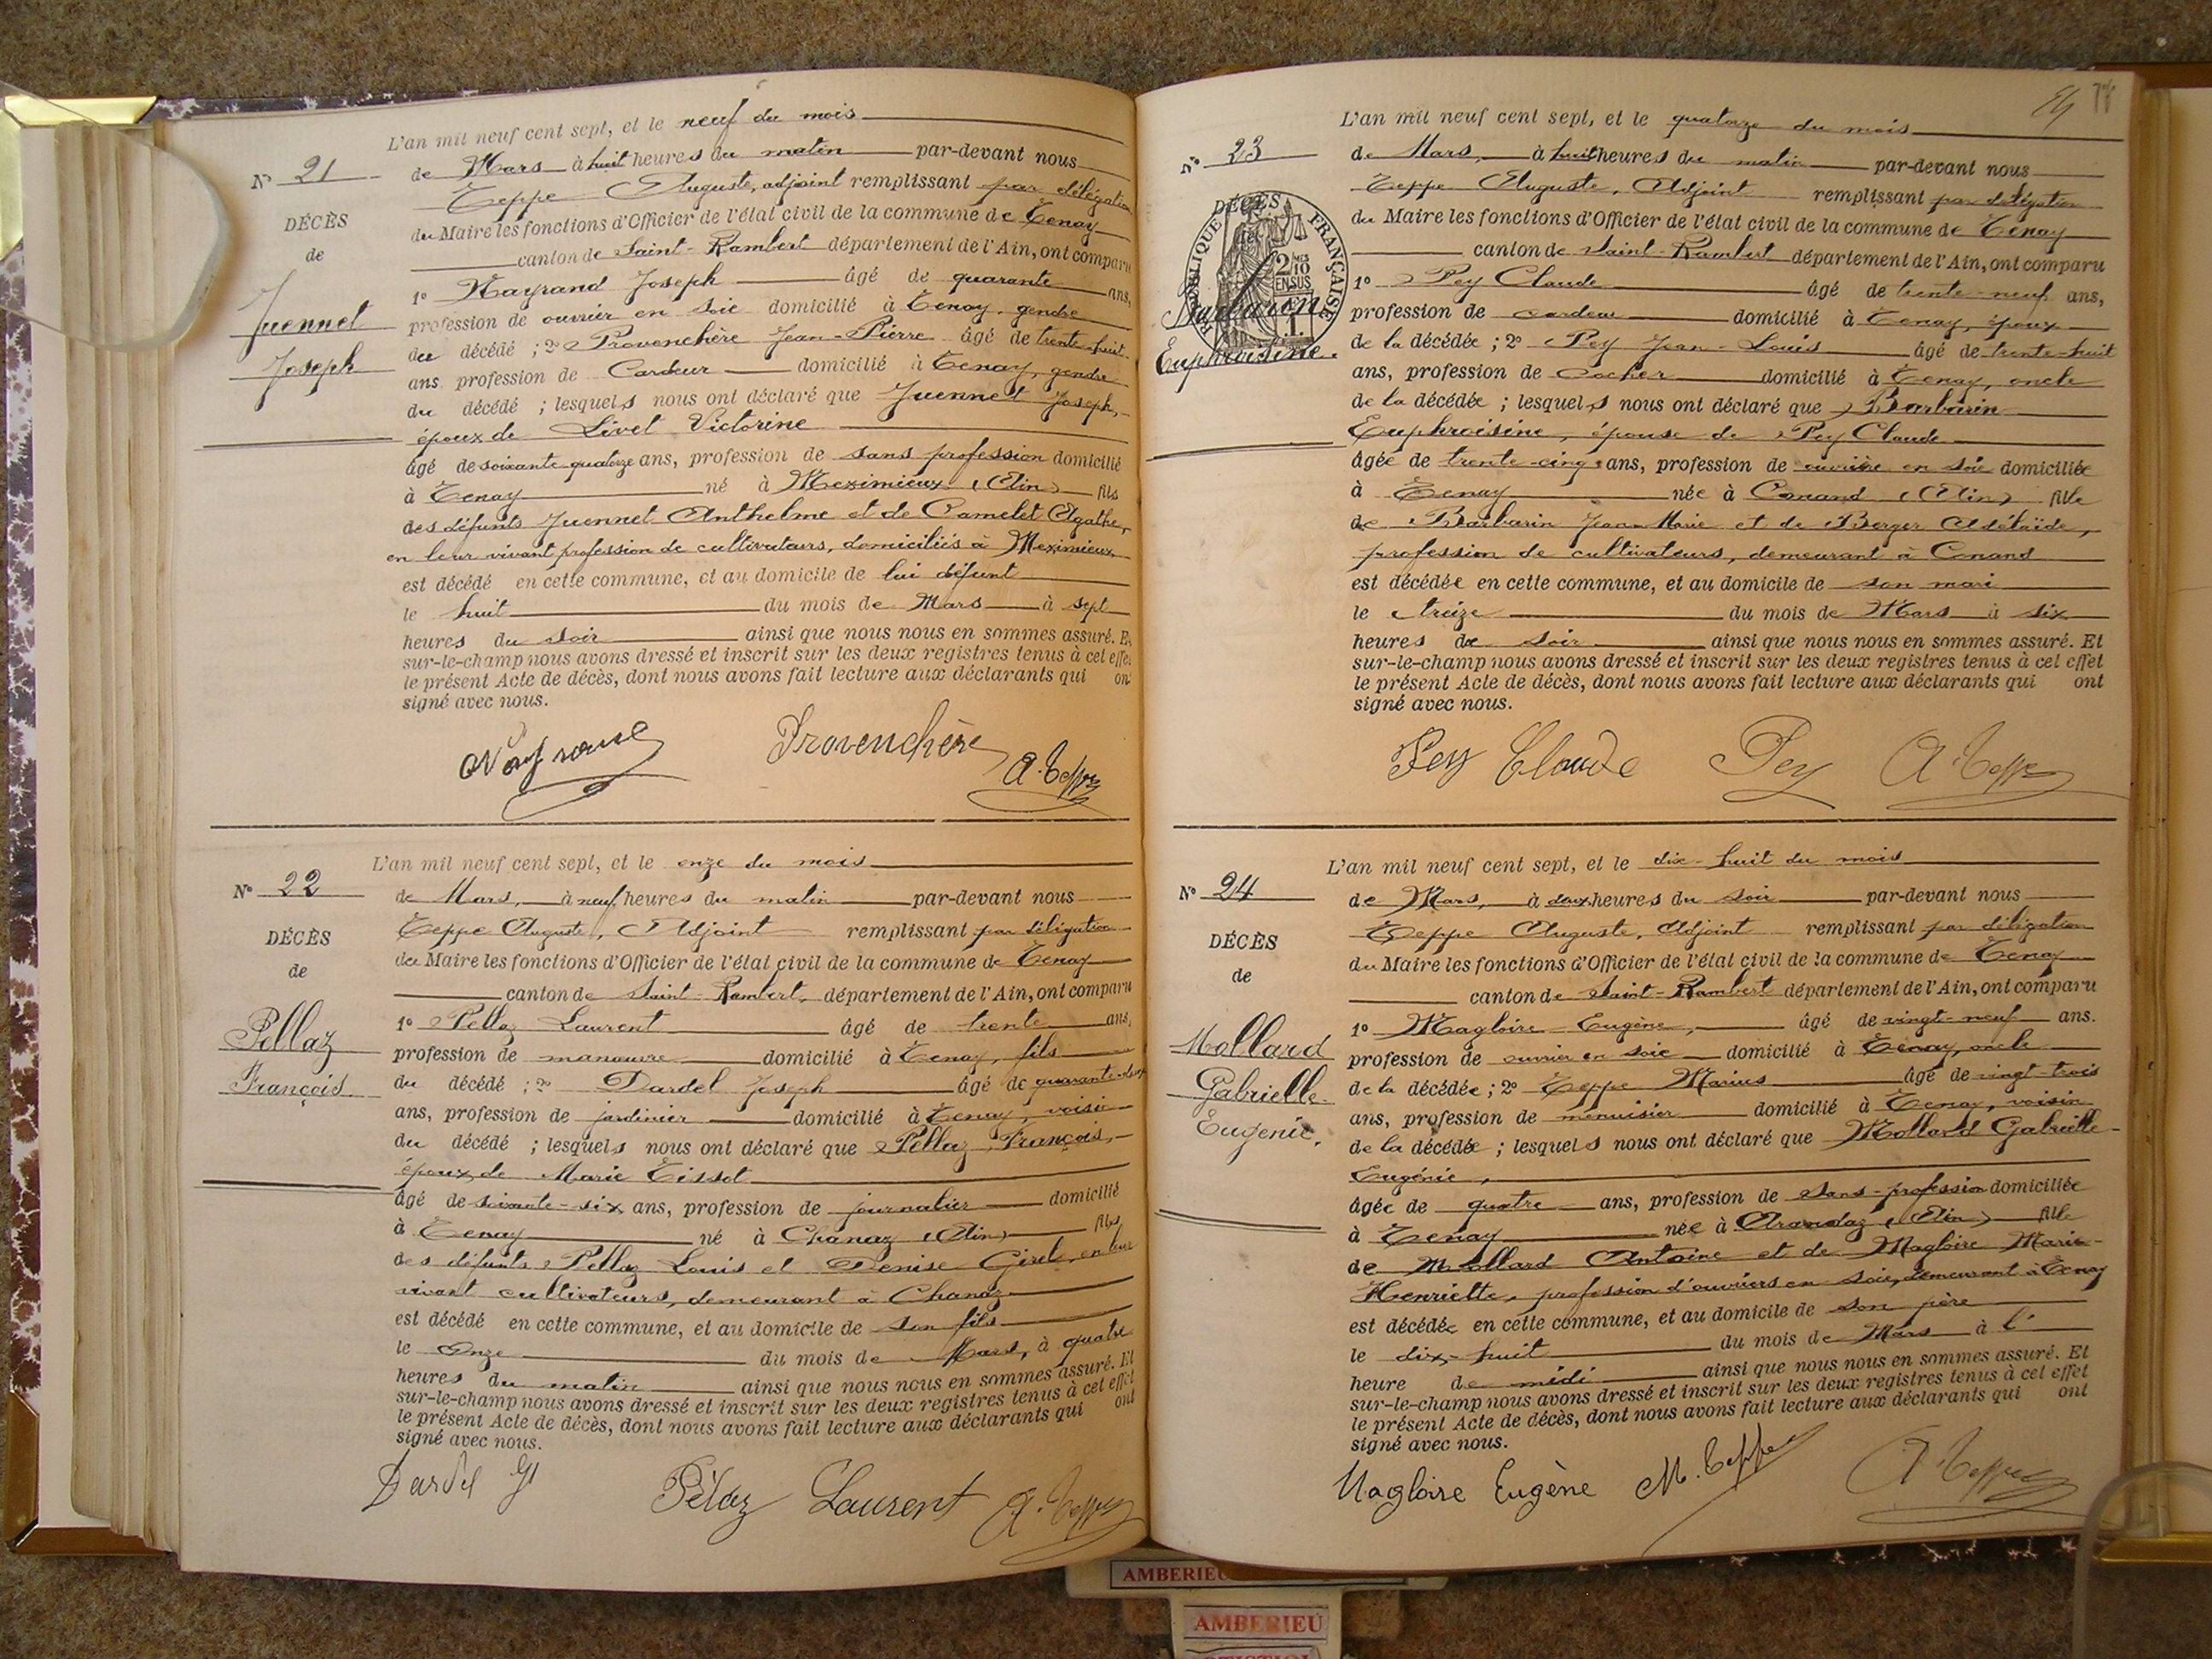 L'an mil neuf cent sept, et le neuf du mois
N° 21
de Mars à huit heures du matin par-devant nous
Teppe Auguste, adjoint remplissant par délégation
DÉCÈS
du Maire les fonctions d'Officier de l'état civil de la commune de Tenay
de
canton de Saint-Rambert département de l'Ain, ont comparu
1° Nayrand Joseph âgé de quarante ans,
Juennet
profession de ouvrier en soie domicilié à Tenay, gendre
du décédé ; 2° Provenchère Jean-Pierre âgé de trente-huit
Joseph
ans profession de Cardeur domicilié à Tenay, gendre
du décédé ; lesquels nous ont déclaré que Juennet Joseph,
époux de Livet Victorine
âgé de soixante quatorze ans, profession de sans profession domicilié
à Tenay né à Meximieux (Ain) fils
des défunts Juennet Anthelme et de Camelet Agathe,
en leur vivant profession de cultivateurs, domiciliés à Meximieux
est décédé en cette commune, et au domicile de lui défunt
le huit du mois de Mars à sept
heures du soir ainsi que nous nous en sommes assuré. Et
sur-le-champ nous avons dressé et inscrit sur les deux registres tenus à cet effet
le présent Acte de décès, dont nous avons fait lecture aux déclarants qui ont
signé avec nous.
Provenchère A. Teppe
L'an mil neuf cent sept, et le onze du mois
N° 22
de Mars, à neuf heures du matin par-devant nous
Teppe Auguste, Adjoint remplissant par délégation
DÉCÈS
du Maire les fonctions d'Officier de l'état civil de la commune de Tenay
de
canton de Saint-Rambert, département de l'Ain, ont comparu
1° Pellaz Laurent âgé de trente ans,
Pellaz
profession de manœuvre domicilié à Tenay, fils
François.
du décédé ; 2° Dardel Joseph âgé de quarante-deux
ans, profession de jardinier domicilié à Tenay, voisin
du décédé ; lesquels nous ont déclaré que Pellaz François,
époux de Marie Tissot
âgé de soixante-six ans, profession de journalier domicilié
à Tenay né à Chanaz (Ain) fils
des défunts Pellaz Louis et Denise Girel, en leur
vivant cultivateurs, demeurant à Chanaz
est décédé en cette commune, et au domicile de son fils
le onze du mois de Mars, à quatre
heures du matin ainsi que nous nous en sommes assuré. Et
sur-le-champ nous avons dressé et inscrit sur les deux registres tenus à cet effet
le présent Acte de décès, dont nous avons fait lecture aux déclarants qui ont
signé avec nous.
Dardel Pélaz Laurent A. Teppe
78
L'an mil neuf cent sept, et le quatorze du mois
N° 23
de Mars, à huit heures du matin par-devant nous
Teppe Auguste, Adjoint remplissant par délégation
DÉCÈS
RÉPUBLIQUE FRANÇAISE
2/10 EN SUS
du Maire les fonctions d'Officier de l'état civil de la commune de Tenay
canton de Saint-Rambert département de l'Ain, ont comparu
1° Pey Claude âgé de trente-neuf ans,
Barbarin
profession de cardeur domicilié à Tenay, époux
Euphroisine.
de la décédée ; 2° Pey Jean-Louis âgé de trente-huit
ans, profession de cocher domicilié à Tenay, oncle
de la décédée ; lesquels nous ont déclaré que Barbarin
Euphroisine, épouse de Pey Claude
âgée de trente-cinq ans, profession de ouvrière en soie domiciliée
à Tenay née à Conand (Ain) fille
de Barbarin Jean-Marie et de Berger Adélaïde,
profession de cultivateurs, demeurant à Conand
est décédée en cette commune, et au domicile de son mari
le treize du mois de Mars à six
heures du soir ainsi que nous nous en sommes assuré. Et
sur-le-champ nous avons dressé et inscrit sur les deux registres tenus à cet effet
le présent Acte de décès, dont nous avons fait lecture aux déclarants qui ont
signé avec nous.
Pey Claude Pey A. Teppe
L'an mil neuf cent sept, et le dix-huit du mois
N° 24
de Mars, à deux heures du soir par-devant nous
Teppe Auguste, Adjoint remplissant par délégation
DÉCÈS
du Maire les fonctions d'Officier de l'état civil de la commune de Tenay
de
canton de Saint-Rambert département de l'Ain, ont comparu
1° Magloire Eugène, âgé de vingt-neuf ans.
Mollard
profession de ouvrier en soie domicilié à Tenay, oncle
Gabrielle
de la décédée ; 2° Teppe Marius âgé de vingt-trois
Eugénie.
ans, profession de menuisier domicilié à Tenay, voisin
de la décédée ; lesquels nous ont déclaré que Mollard Gabrielle
Eugénie,
âgée de quatre ans, profession de sans-profession domiciliée
à Tenay née à Arandaz (Ain) fille
de Mollard Antoine et de Magloire Marie-
Henriette, profession d'ouvriers en soie, demeurant à Tenay
est décédée en cette commune, et au domicile de son père
le dix-huit du mois de Mars à l'
heure de midi ainsi que nous nous en sommes assuré. Et
sur-le-champ nous avons dressé et inscrit sur les deux registres tenus à cet effet
le présent Acte de décès, dont nous avons fait lecture aux déclarants qui ont
signé avec nous.
Magloire Eugène M. Teppe A. Teppe
AMBERIEU
AMBERIEU